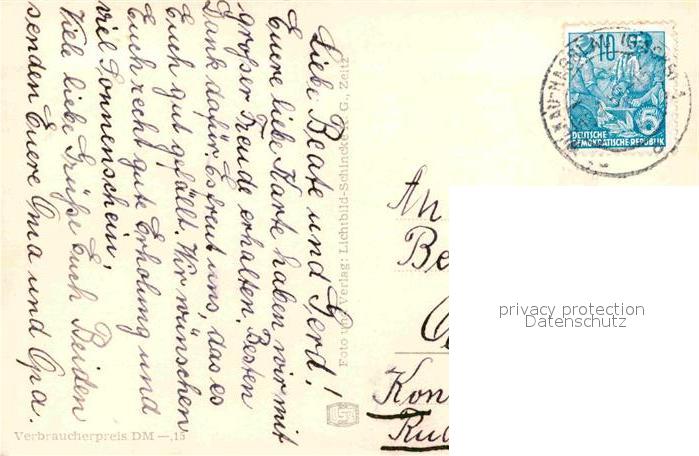 Liebe Beate und Gerd!
Euere liebe Karte haben wir mit
großer Freude erhalten. Besten
Dank dafür. Es freut uns, das es
Euch gut gefällt. Wir wünschen
Euch recht gute Erholung und
viel Sonnenschein.
Viele liebe Grüße Euch Beiden
senden Euere Oma und Opa.
Foto und Verlag: Lichtbild-Schincke K. G., Zeitz
Verbraucherpreis DM —,15
10
5
DEUTSCHE
DEMOKRATISCHE REPUBLIK
An
Be
Kon
privacy protection
Datenschutz